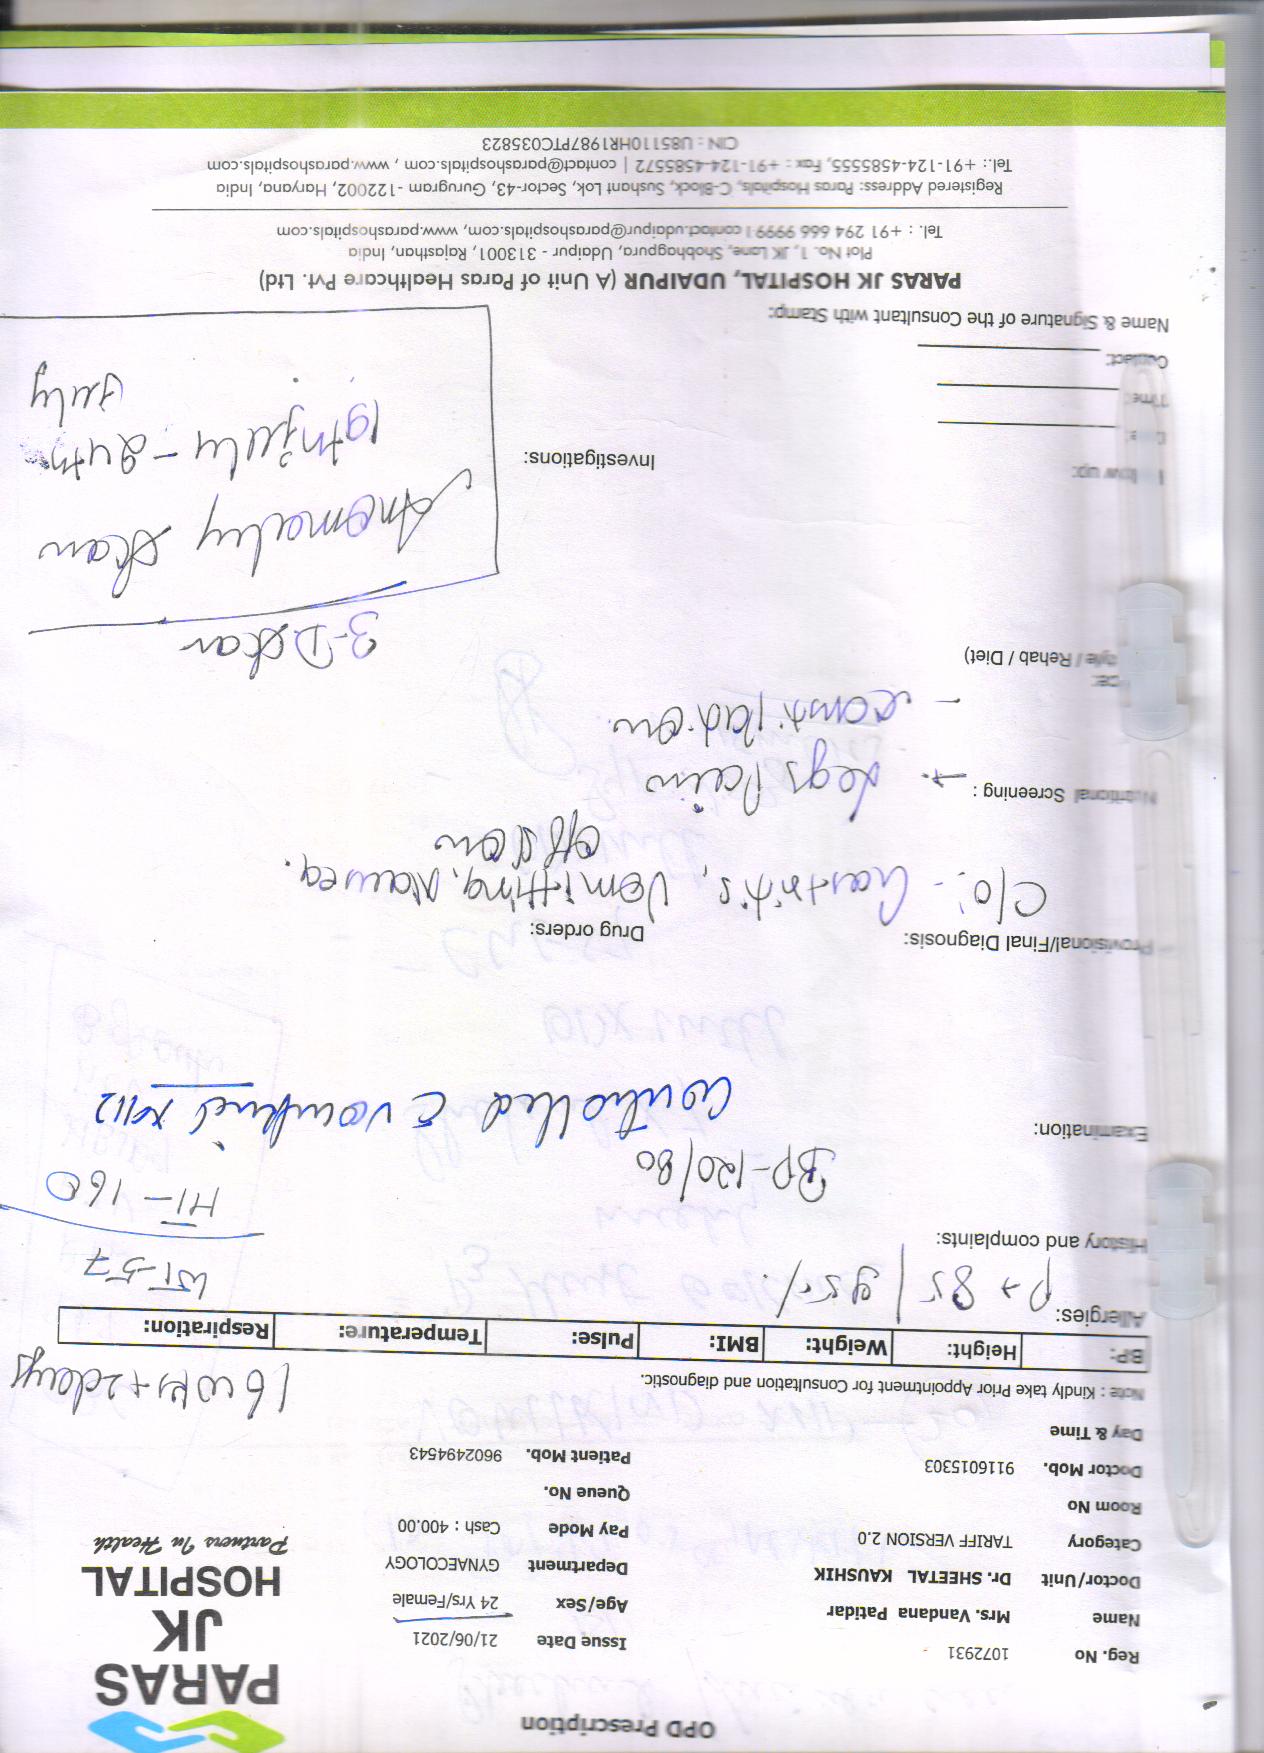 OPD Prescription
PARAS
JK
HOSPITAL
Partners In Health
Reg. No 1072931 Issue Date 21/06/2021
Name Mrs. Vandana Patidar Age/Sex 24 Yrs/Female
Doctor/Unit Dr. SHEETAL KAUSHIK Department GYNAECOLOGY
Category TARIFF VERSION 2.0 Pay Mode Cash : 400.00
Room No Queue No.
Doctor Mob. 9116015303 Patient Mob. 9602494543
Day & Time
Note : Kindly take Prior Appointment for Consultation and diagnostic.
16 wks+2days
BP: Height: Weight: BMI: Pulse: Temperature: Respiration:
Allergies: P→ 85 / 95%
WT-57
History and complaints:
HT-160
BP-120/80
Examination:
Controlled
Provisional/Final Diagnosis: Drug orders:
C/O:- Gastritis, Vomitting, Nausea.
off & on
Nutritional Screening : → Legs Pain
- constipation
style / Rehab / Diet)
3-D Scan
Anomaly Scan
19th july - 24th
July
Investigations:
low up:
Time:
Contact:
Name & Signature of the Consultant with Stamp:
PARAS JK HOSPITAL, UDAIPUR (A Unit of Paras Healthcare Pvt. Ltd)
Plot No. 1, JK Lane, Shobhagpura, Udaipur - 313001, Rajasthan, India
Tel. : +91 294 666 9999 | contact.udaipur@parashospitals.com, www.parashospitals.com
Registered Address: Paras Hospitals, C-Block, Sushant Lok, Sector-43, Gurugram -122002, Haryana, India
Tel.: +91-124-4585555, Fax : +91-124-4585572 | contact@parashospitals.com , www.parashospitals.com
CIN : U85110HR1987PTC035823